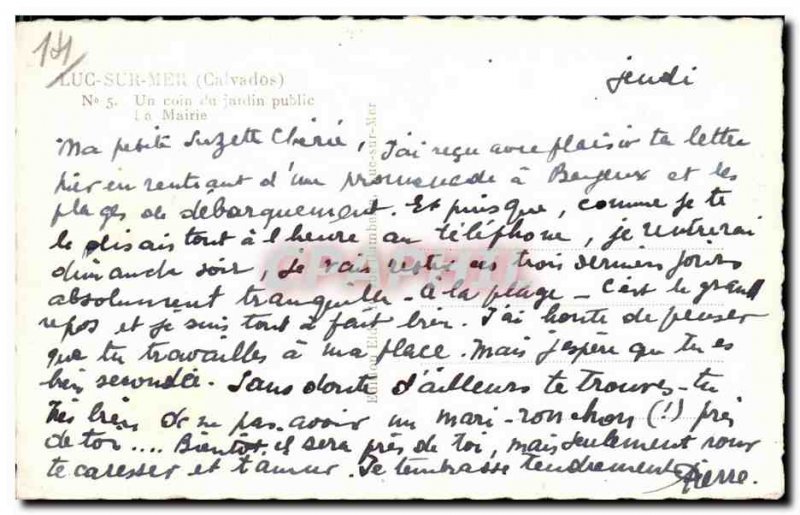 141
LUC-SUR-MER (Calvados)
No 5. Un coin du jardin public
La Mairie
jeudi
Ma petite Suzette Chérie, J'ai reçu avec plaisir ta lettre
hier en rentrant d'une promenade à Bayeux et les
plages de débarquement. Et puisque, comme je te
le disais tout à l'heure au téléphone, je rentrerai
dimanche soir, je vais rester ces trois derniers jours
absolument tranquille - à la plage - c'est le grand
repos et je suis tout à fait bien. J'ai honte de penser
que tu travailles à ma place. Mais j'espère que tu es
bien secondée. Sans doute d'ailleurs te trouves-tu
très bien de ne pas avoir un mari-ronchon (!) près
de toi .... Bientôt il sera près de toi, mais seulement pour
te caresser et t'aimer. Je t'embrasse tendrement
Pierre.
Edition Luc-sur-Mer
CPAPHIL